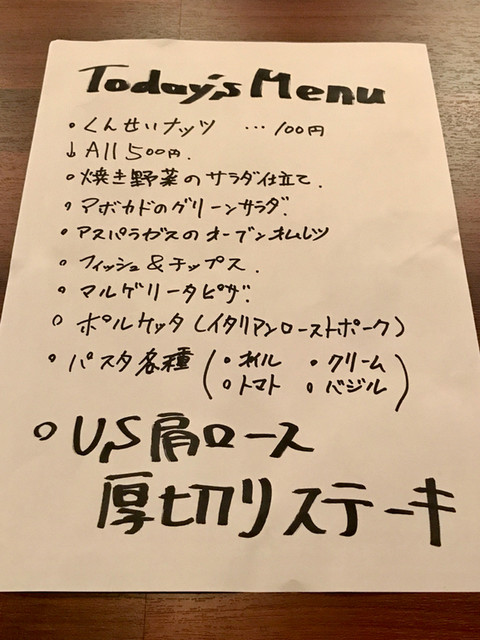 Today's Menu
◦ くんせいナッツ … 100円
↓ All 500円.
◦ 焼き野菜のサラダ仕立て.
◦ アボカドのグリーンサラダ.
◦ アスパラガスのオーブンオムレツ
◦ フィッシュ&チップス.
◦ マルゲリータピザ.
◦ ポルケッタ(イタリアンローストポーク)
◦ パスタ各種 (◦ オイル ◦ クリーム
◦ トマト ◦ バジル)
◦ U,S肩ロース
厚切りステーキ